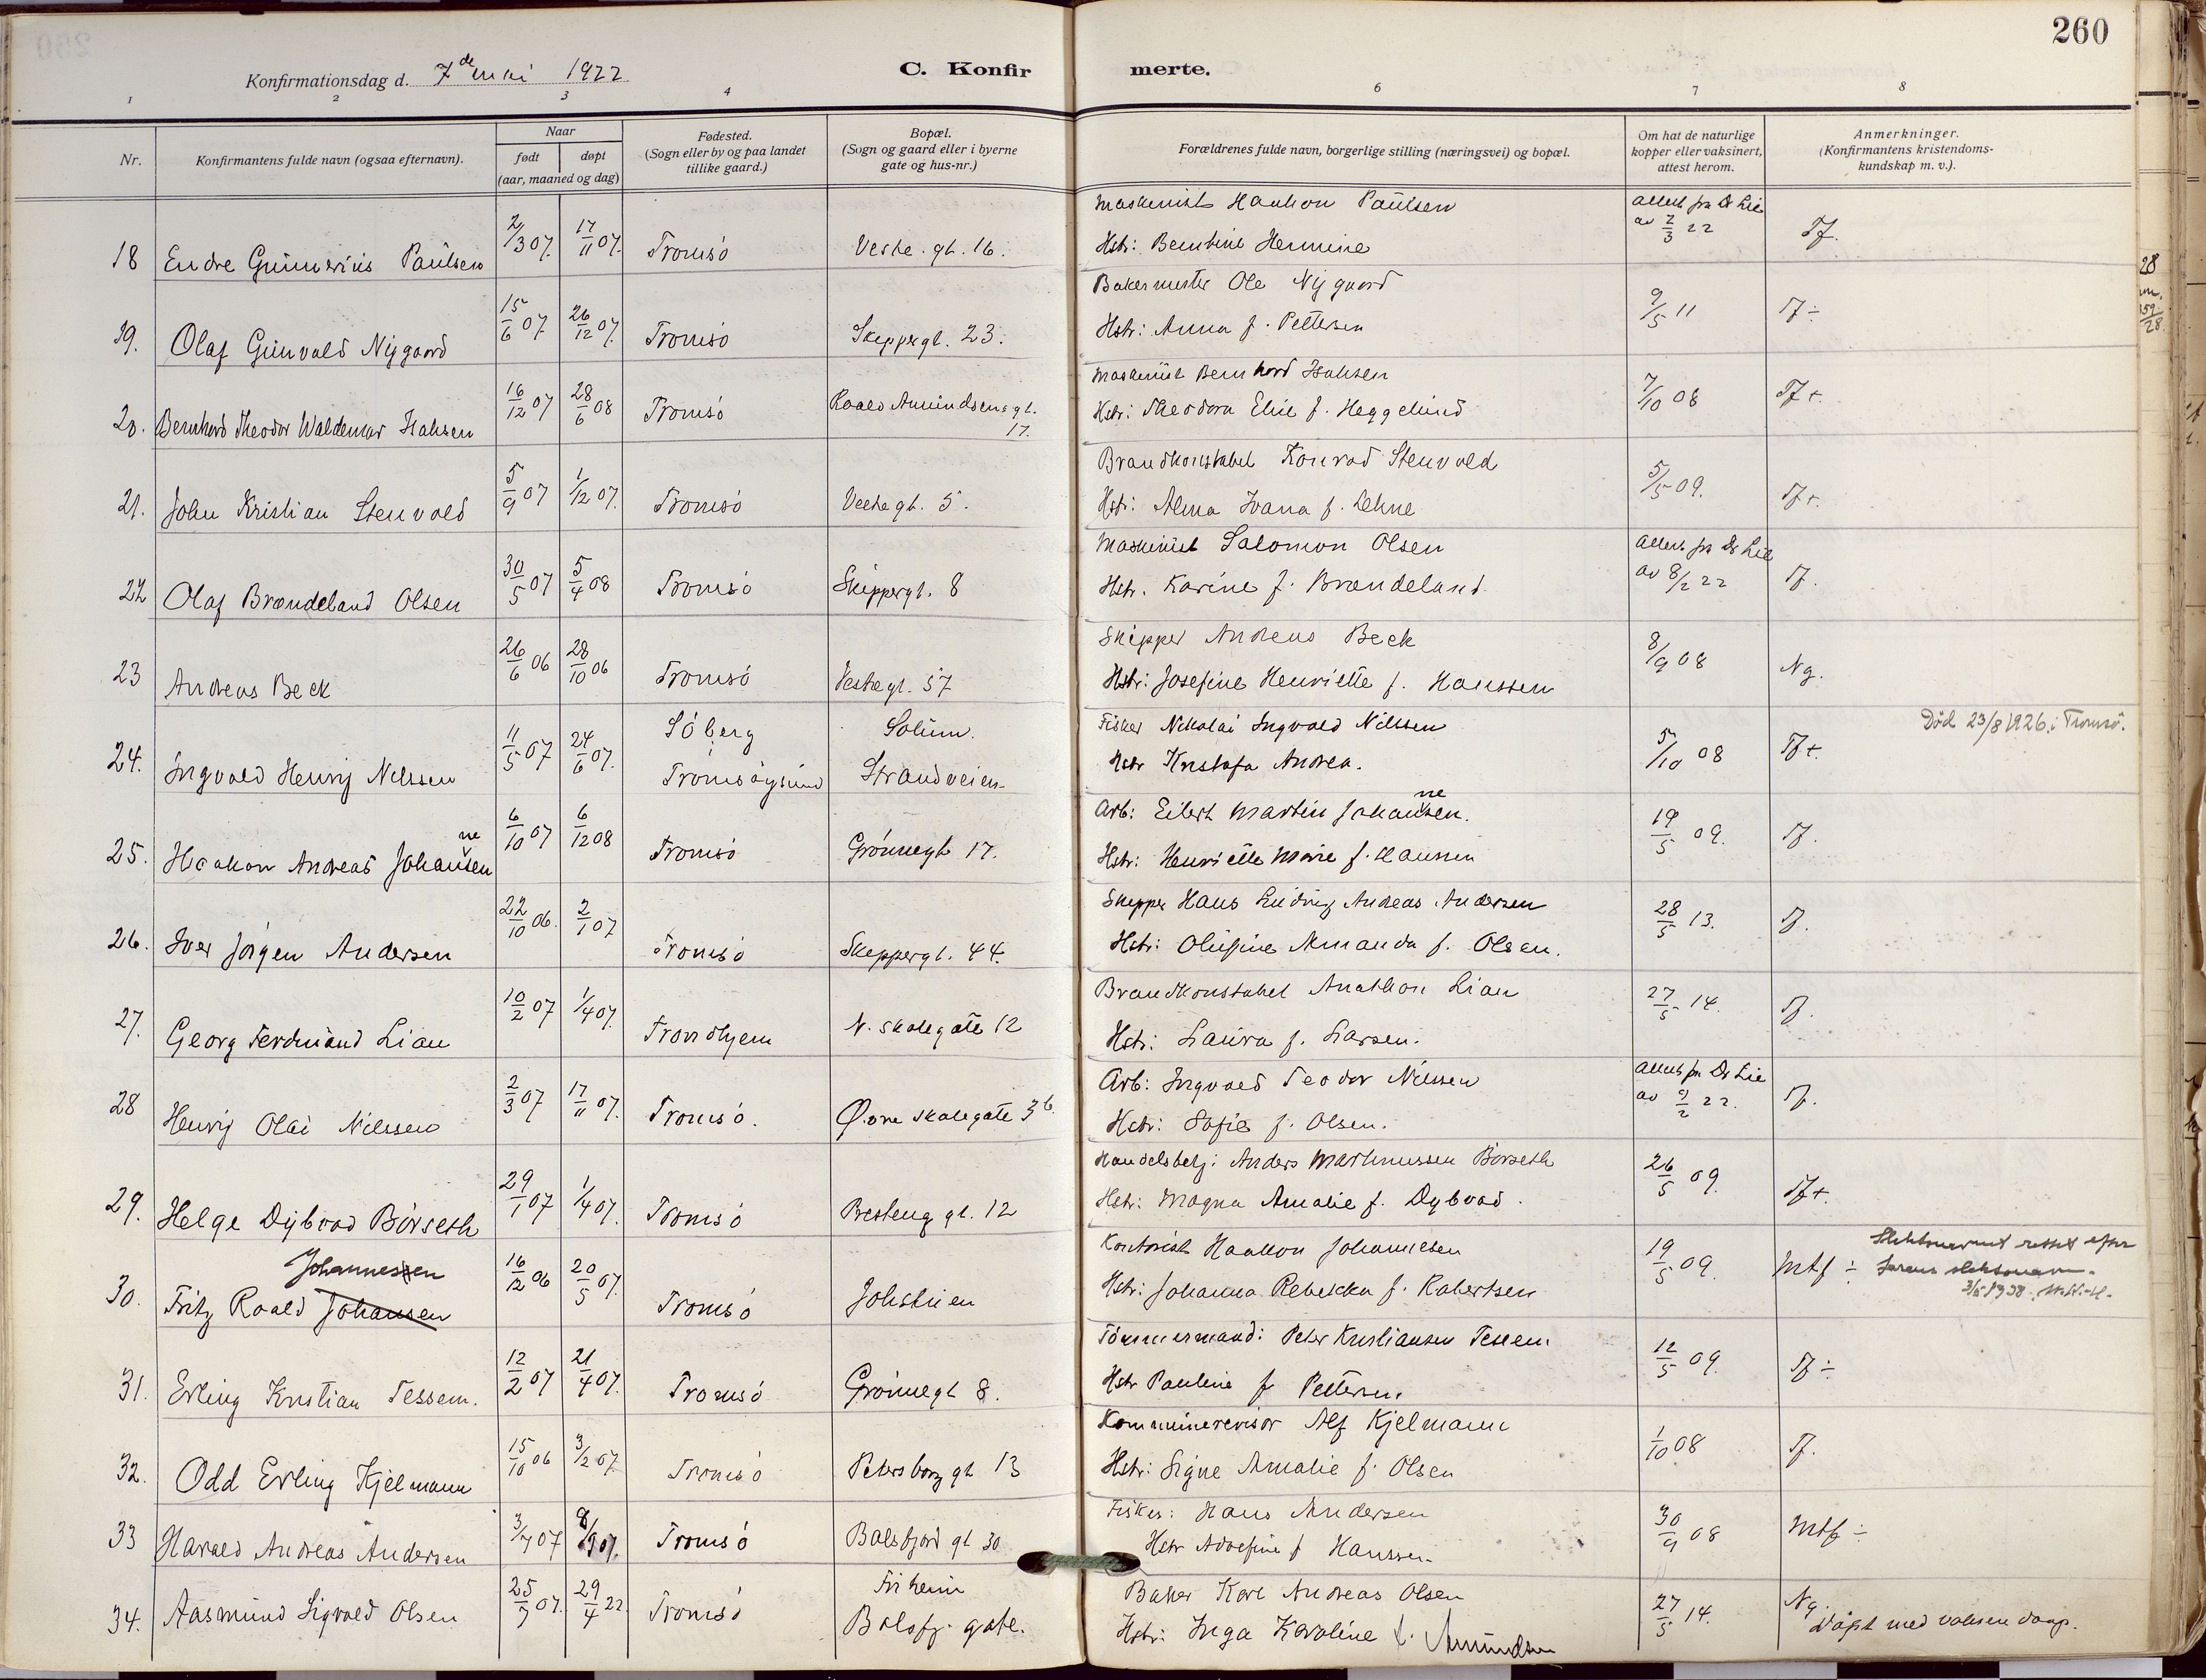 260
Konfirmationsdag d. 7de mai 1922
C. Konfirmerte.
1 2 3 4 6 7 8
Nr.
Konfirmantens fulde navn (ogsaa efternavn).
Naar
født døpt
(aar, maaned og dag)
Fødested.
(Sogn eller by og paa landet
tillike gaard.)
Bopæl.
(Sogn og gaard eller i byerne
gate og hus-nr.)
Forældrenes fulde navn, borgerlige stilling (næringsvei) og bopæl.
Om hat de naturlige
kopper eller vaksinert,
attest herom.
Anmerkninger.
(Konfirmantens kristendoms-
kundskap m. v.).
Maskinist Haakon Paulsen Attest fra Dr Lie
18 Endre Gunnerius Paulsen 2/3 07. 17/11 07. Tromsö Vestre. gt. 16. Hstr: Berntine Hermine av 2/3 22 Tf.
Bakermester Ole Nygaard
19. Olaf Gunvald Nygaard 15/6 07 26/12 07. Tromsö Skippergt. 23. Hstr: Anna f. Pettersen 9/5 11 Tf ÷
Maskinist Bernhard Isaksen
20. Bernhard Theodor Waldemar Isaksen 16/12 07 28/6 08 Tromsö Roald Amundsens gt. 17. Hstr: Theodora Elise f. Heggelund 7/10 08 Tf+
Brandkonstabel Konrad Stenvold
21. John Kristian Stenvold 5/9 07 1/12 07. Tromsö Vestregt. 5. Hstr: Alma Ivana f. Lehne 5/5 09. Tf+.
Maskinist Salomon Olsen Attest fra Dr Lie
22 Olaf Brændeland Olsen 30/5 07 5/4 08 Tromsö Skippergt. 8 Hstr. Karine f. Brændeland av 8/2 22 Tf.
Skipper Andreas Beck
23 Andreas Beck 26/6 06 28/10 06 Tromsö Vestregt. 57 Hstr: Josefine Henriette f. Hanssen 8/9 08 Ng.
Söberg i Tromsöysund Solum. Strandveien Fisker Nikolai Ingvald Nilssen Död 23/8 1926 i Tromsö.
24. Ingvald Henrij Nilssen 11/5 07 24/6 07. Hstr Kristofa Andrea. 5/10 08 Tf+.
Arb: Eilert Martin Johannesen.
25. Haakon Andreas Johannesen 6/10 07 6/12 08 Tromsö Grönnegt 17. Hstr: Henriette Marie f. Hansen 19/5 09. Tf.
Skipper Hans Ludvig Andreas Andersen
26. Iver Jörgen Andersen 22/10 06. 2/1 07 Tromsö Skippergt. 44. Hstr: Olufine Amanda f. Olsen. 28/5 13. Tf.
Brandkonstabel Anathon Lian
27. Georg Ferdinand Lian 10/2 07 1/4 07. Trondhjem N. Skolegate 12 Hstr: Laura f. Larsen. 27/5 14. Tf.
Arb: Ingvald Teodor Nilssen Attest fra Dr Lie
28 Henrij Olai Nilssen 2/3 07 17/11 07. Tromsö. Övre Skolegate 3b. Hstr: Sofie f. Olsen. av 9/2 22. Tf.
Handelsbetj: Anders Martinussen Börseth
29. Helge Dybvad Börseth 29/1 07 1/4 07. Tromsö Bestengt. 12 Hstr: Magna Amalie f. Dybvad. 26/5 09. Tf+.
Kontorist Haakon Johannesen Slektsnavnet rettet efter
30. Fritz Roald Johansen Johannessen 16/12 06 20/5 07. Tromsö Hstr: Johanna Rebekka f. Robertsen 19/5 09. Mtf ÷ farens slektsnavn.
1938
Tömmermand: Peter Kristiansen Tessem
31. Erling Kristian Tessem. 12/2 07 21/4 07. Tromsö Grönnegt 8. Hstr Pauline f Pettersen. 12/5 09. Tf ÷
Kommunerevisor Alf Kjelmann
32. Odd Erling Kjelmann 15/10 06 3/2 07. Tromsö Petersborg gt 13 Hstr: Signe Amalie f. Olsen 1/10 08 Tf.
Fisker: Hans Andersen
33 Harald Andreas Andersen 3/7 07 8/9 07. Tromsö Balsfjord gt 30 Hstr Adolfine f Hanssen 30/9 08 Mtf ÷
Friheim Baker Karl Andreas Olsen
34. Aasmund Sigvald Olsen 25/7 07. 29/4 22 Tromsö Balsfj. gate. Hstr: Inga Karoline f. Amundsen 27/5 14. Ng. Döpt med voksen daap.